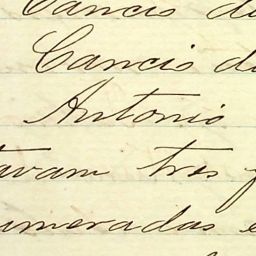 Cancio di
Cancio di
Antonio
tavam tres f
umeradas e